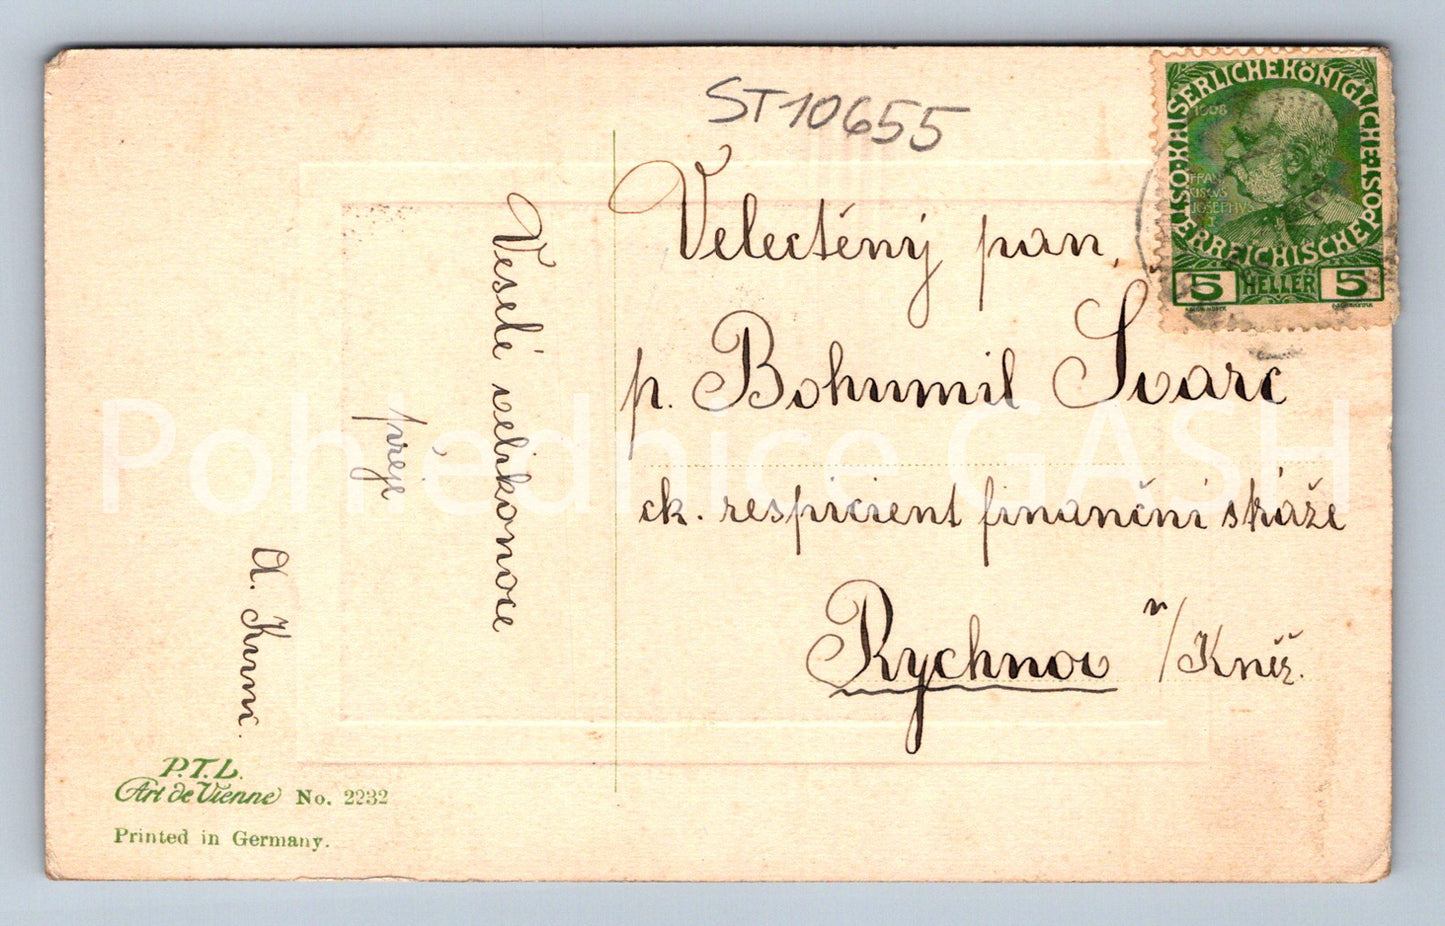 ST10655
Velectěný pan,
p. Bohumil Svarc
ck. respicient finanční stráže
Rychnov n/Kněž.
Veselé velikonoce
přeje
P.T.L.
Art de Vienne No. 2232
Printed in Germany.
KAISERLICHE KÖNIGLICHE ÖSTERREICHISCHE POST
1908
FRAN
CISCVS
JOSEPHVS
I
5 HELLER 5
Pohlednice GASH